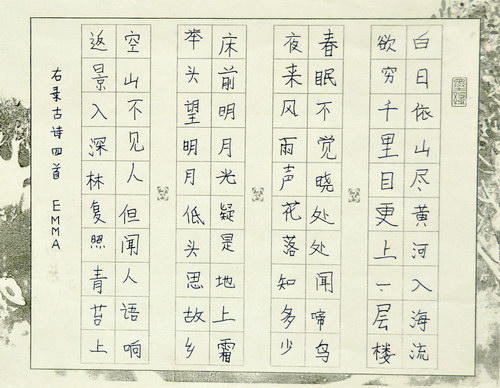 白日依山尽黄河入海流
欲穷千里目更上一层楼
春眠不觉晓处处闻啼鸟
夜来风雨声花落知多少
床前明月光疑是地上霜
举头望明月低头思故乡
空山不见人但闻人语响
返景入深林复照青苔上
右录古诗四首 EMMA